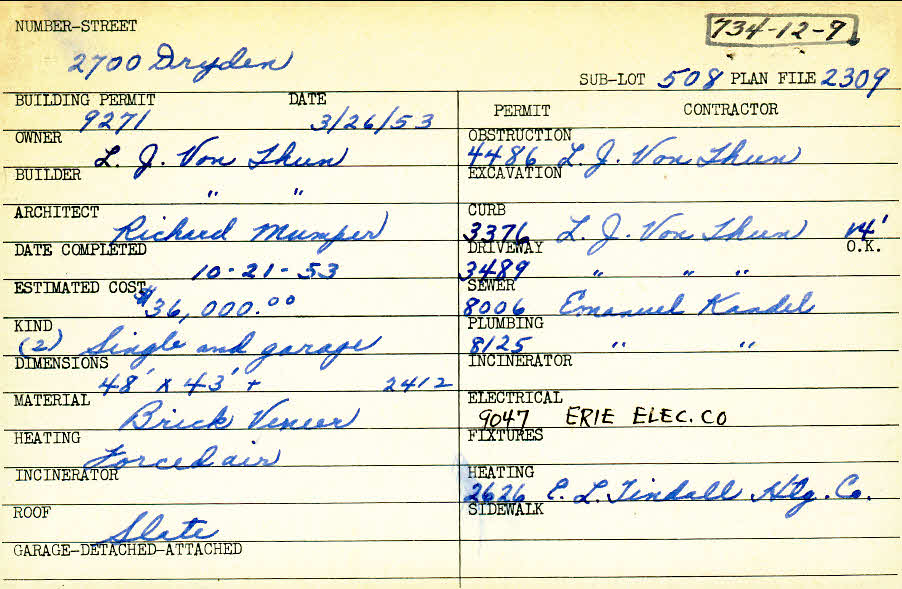 NUMBER-STREET
734-12-9
2700 Dryden
SUB-LOT 508 PLAN FILE 2309
BUILDING PERMIT DATE
9271 3/26/53
OWNER
L. J. Von Thun
BUILDER
" "
ARCHITECT
Richard Mumper
DATE COMPLETED
10-21-53
ESTIMATED COST
$36,000.00
KIND
(2) Single and garage
DIMENSIONS
48' x 43' + 2412
MATERIAL
Brick Veneer
HEATING
Forced air
INCINERATOR
ROOF
Slate
GARAGE-DETACHED-ATTACHED
PERMIT CONTRACTOR
OBSTRUCTION
4486 L. J. Von Thun
EXCAVATION
CURB
3376 L. J. Von Thun 14'
DRIVEWAY O.K.
3489 " " "
SEWER
8006 Emanuel Kandel
PLUMBING
8125 " "
INCINERATOR
ELECTRICAL
9047 ERIE ELEC. CO
FIXTURES
HEATING
2626 E. L. Tindall Htg. Co.
SIDEWALK